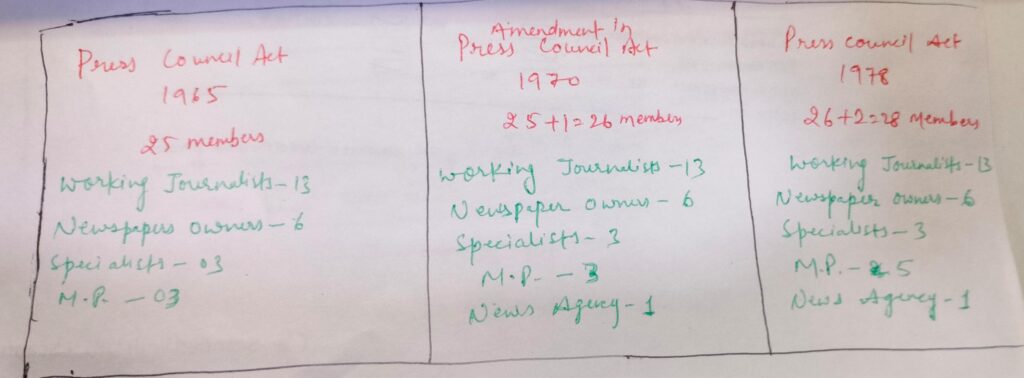 Press Council Act
1965
25 members
Working Journalists - 13
Newspapers owners - 6
Specialists - 03
M.P. - 03
Amendment in
Press Council Act
1970
25+1=26 members
Working Journalists - 13
Newspaper owners - 6
Specialists - 3
M.P. - 3
News Agency - 1
Press council Act
1978
26+2=28 Members
Working Journalists - 13
Newspaper owners - 6
Specialists - 3
M.P. - 5
News Agency - 1